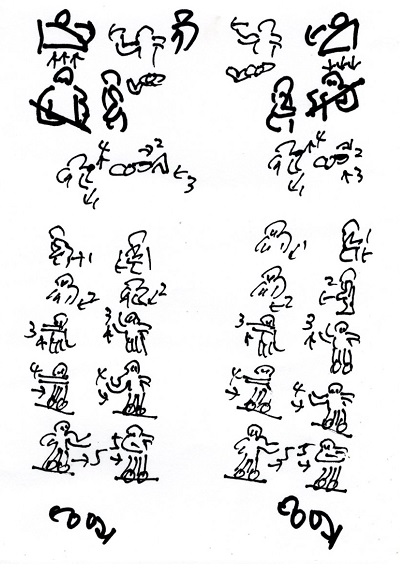 4 2 4 2
3 3
1 1
1 1 1 1
2 2 2 2
3 3 3 3
4 4 4 4
5 5 5 5